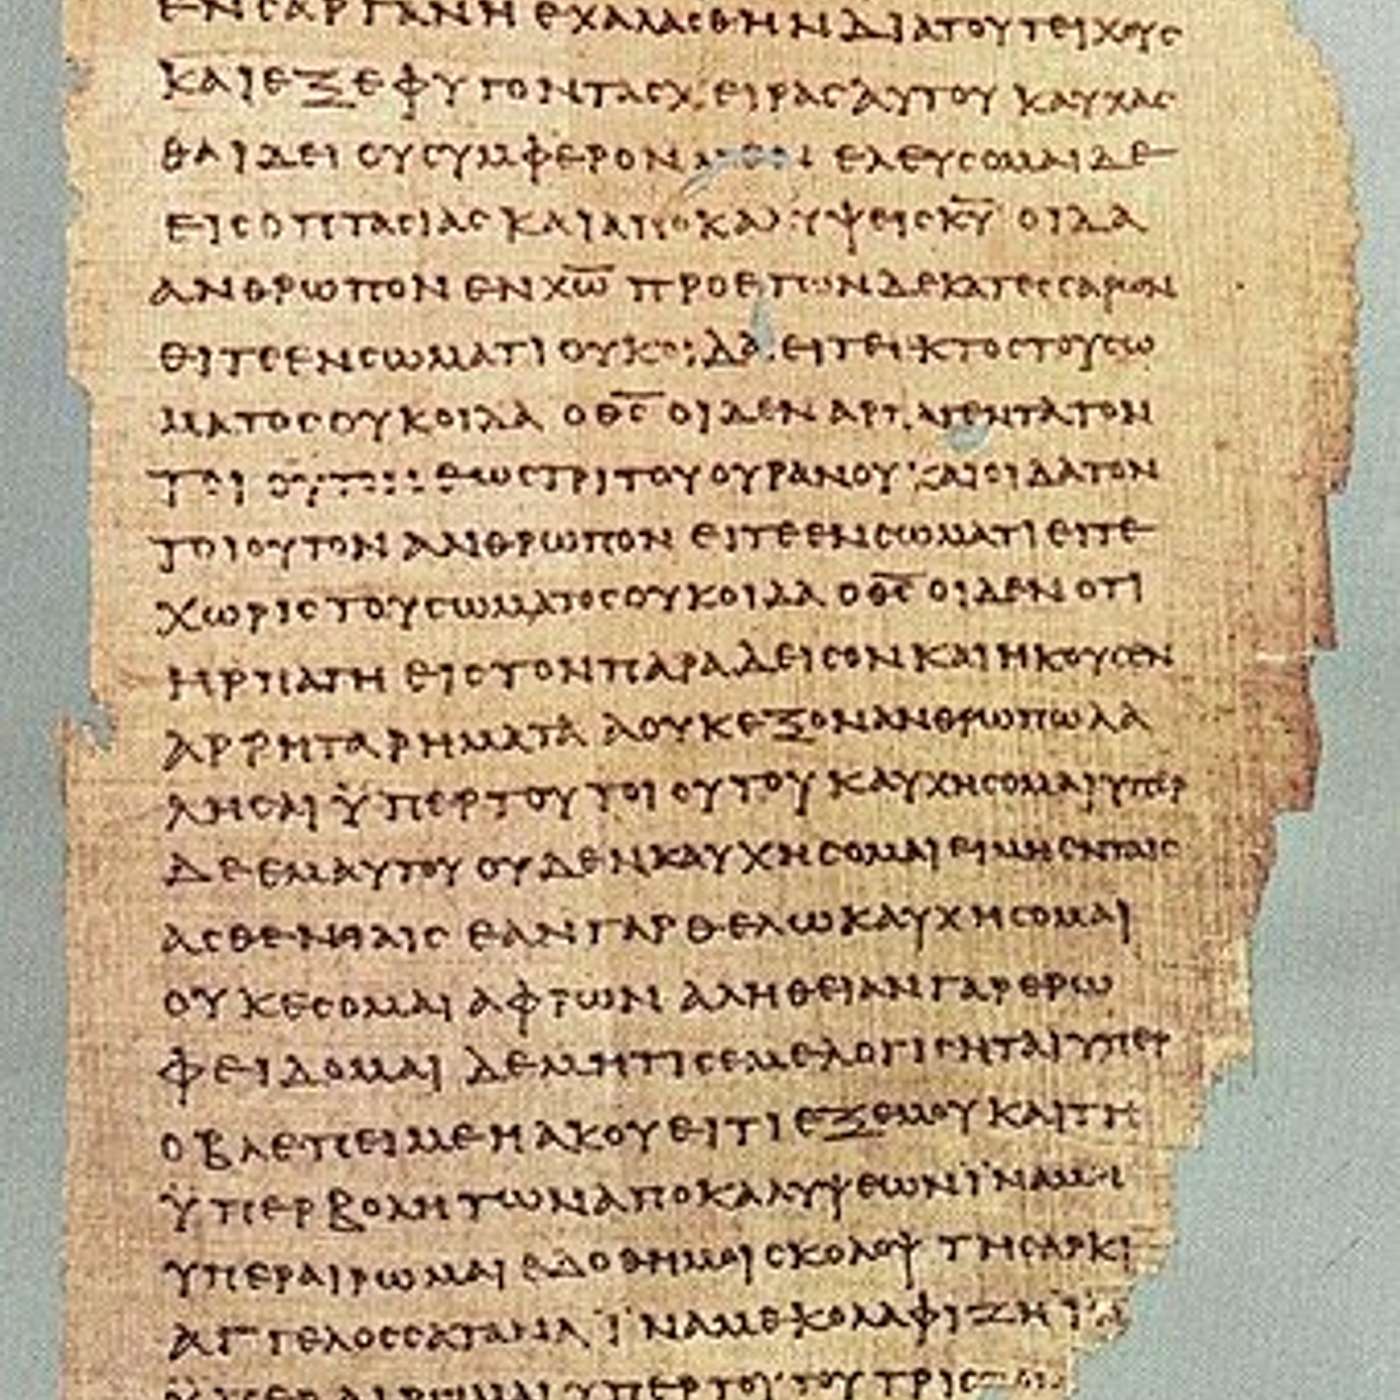 ΕΝ ΣΑΡΓΑΝΗ ΕΧΑΛΑΣΘΗΝ ΔΙΑ ΤΟΥ ΤΕΙΧΟΥΣ
ΚΑΙ ΕΞΕΦΥΓΟΝ ΤΑΣ ΧΕΙΡΑΣ ΑΥΤΟΥ ΚΑΥΧΑΣ
ΘΑΙ ΔΕΙ ΟΥ ΣΥΜΦΕΡΟΝ ΜΕΝ ΕΛΕΥΣΟΜΑΙ ΔΕ
ΕΙΣ ΟΠΤΑΣΙΑΣ ΚΑΙ ΑΠΟΚΑΛΥΨΕΙΣ Κ̅Υ̅ ΟΙΔΑ
ΑΝΘΡΩΠΟΝ ΕΝ Χ̅Ω̅ ΠΡΟ ΕΤΩΝ ΔΕΚΑΤΕΣΣΑΡΩΝ
ΕΙΤΕ ΕΝ ΣΩΜΑΤΙ ΟΥΚ ΟΙΔΑ ΕΙΤΕ ΕΚΤΟΣ ΤΟΥ ΣΩ
ΜΑΤΟΣ ΟΥΚ ΟΙΔΑ Ο Θ̅Σ̅ ΟΙΔΕΝ ΑΡΠΑΓΕΝΤΑ ΤΟΝ
ΤΟΙΟΥΤΟΝ ΕΩΣ ΤΡΙΤΟΥ ΟΥΡΑΝΟΥ ΚΑΙ ΟΙΔΑ ΤΟΝ
ΤΟΙΟΥΤΟΝ ΑΝΘΡΩΠΟΝ ΕΙΤΕ ΕΝ ΣΩΜΑΤΙ ΕΙΤΕ
ΧΩΡΙΣ ΤΟΥ ΣΩΜΑΤΟΣ ΟΥΚ ΟΙΔΑ Ο Θ̅Σ̅ ΟΙΔΕΝ ΟΤΙ
ΗΡΠΑΓΗ ΕΙΣ ΤΟΝ ΠΑΡΑΔΕΙΣΟΝ ΚΑΙ ΗΚΟΥΣΕΝ
ΑΡΡΗΤΑ ΡΗΜΑΤΑ Α ΟΥΚ ΕΞΟΝ ΑΝΘΡΩΠΩ ΛΑ
ΛΗΣΑΙ ΫΠΕΡ ΤΟΥ ΤΟΙΟΥΤΟΥ ΚΑΥΧΗΣΟΜΑΙ ΥΠΕΡ
ΔΕ ΕΜΑΥΤΟΥ ΟΥΔΕΝ ΚΑΥΧΗΣΟΜΑΙ ΕΙ ΜΗ ΕΝ ΤΑΙΣ
ΑΣΘΕΝΕΙΑΙΣ ΕΑΝ ΓΑΡ ΘΕΛΩ ΚΑΥΧΗΣΟΜΑΙ
ΟΥΚ ΕΣΟΜΑΙ ΑΦΡΩΝ ΑΛΗΘΕΙΑΝ ΓΑΡ ΕΡΩ
ΦΕΙΔΟΜΑΙ ΔΕ ΜΗ ΤΙΣ ΕΜΕ ΛΟΓΙΣΗΤΑΙ ΥΠΕΡ
Ο ΒΛΕΠΕΙ ΜΕ Η ΑΚΟΥΕΙ ΤΙ ΕΞ ΕΜΟΥ ΚΑΙ ΤΗ
ΫΠΕΡΒΟΛΗ ΤΩΝ ΑΠΟΚΑΛΥΨΕΩΝ ΪΝΑ ΜΗ
ΥΠΕΡΑΙΡΩΜΑΙ ΕΔΟΘΗ ΜΟΙ ΣΚΟΛΟΨ ΤΗ ΣΑΡΚΙ
ΑΓΓΕΛΟΣ ΣΑΤΑΝΑ ΪΝΑ ΜΕ ΚΟΛΑΦΙΖΗ ΪΝΑ
ΥΠΕΡ ΤΟΥΤΟΥ ΤΡΙΣ